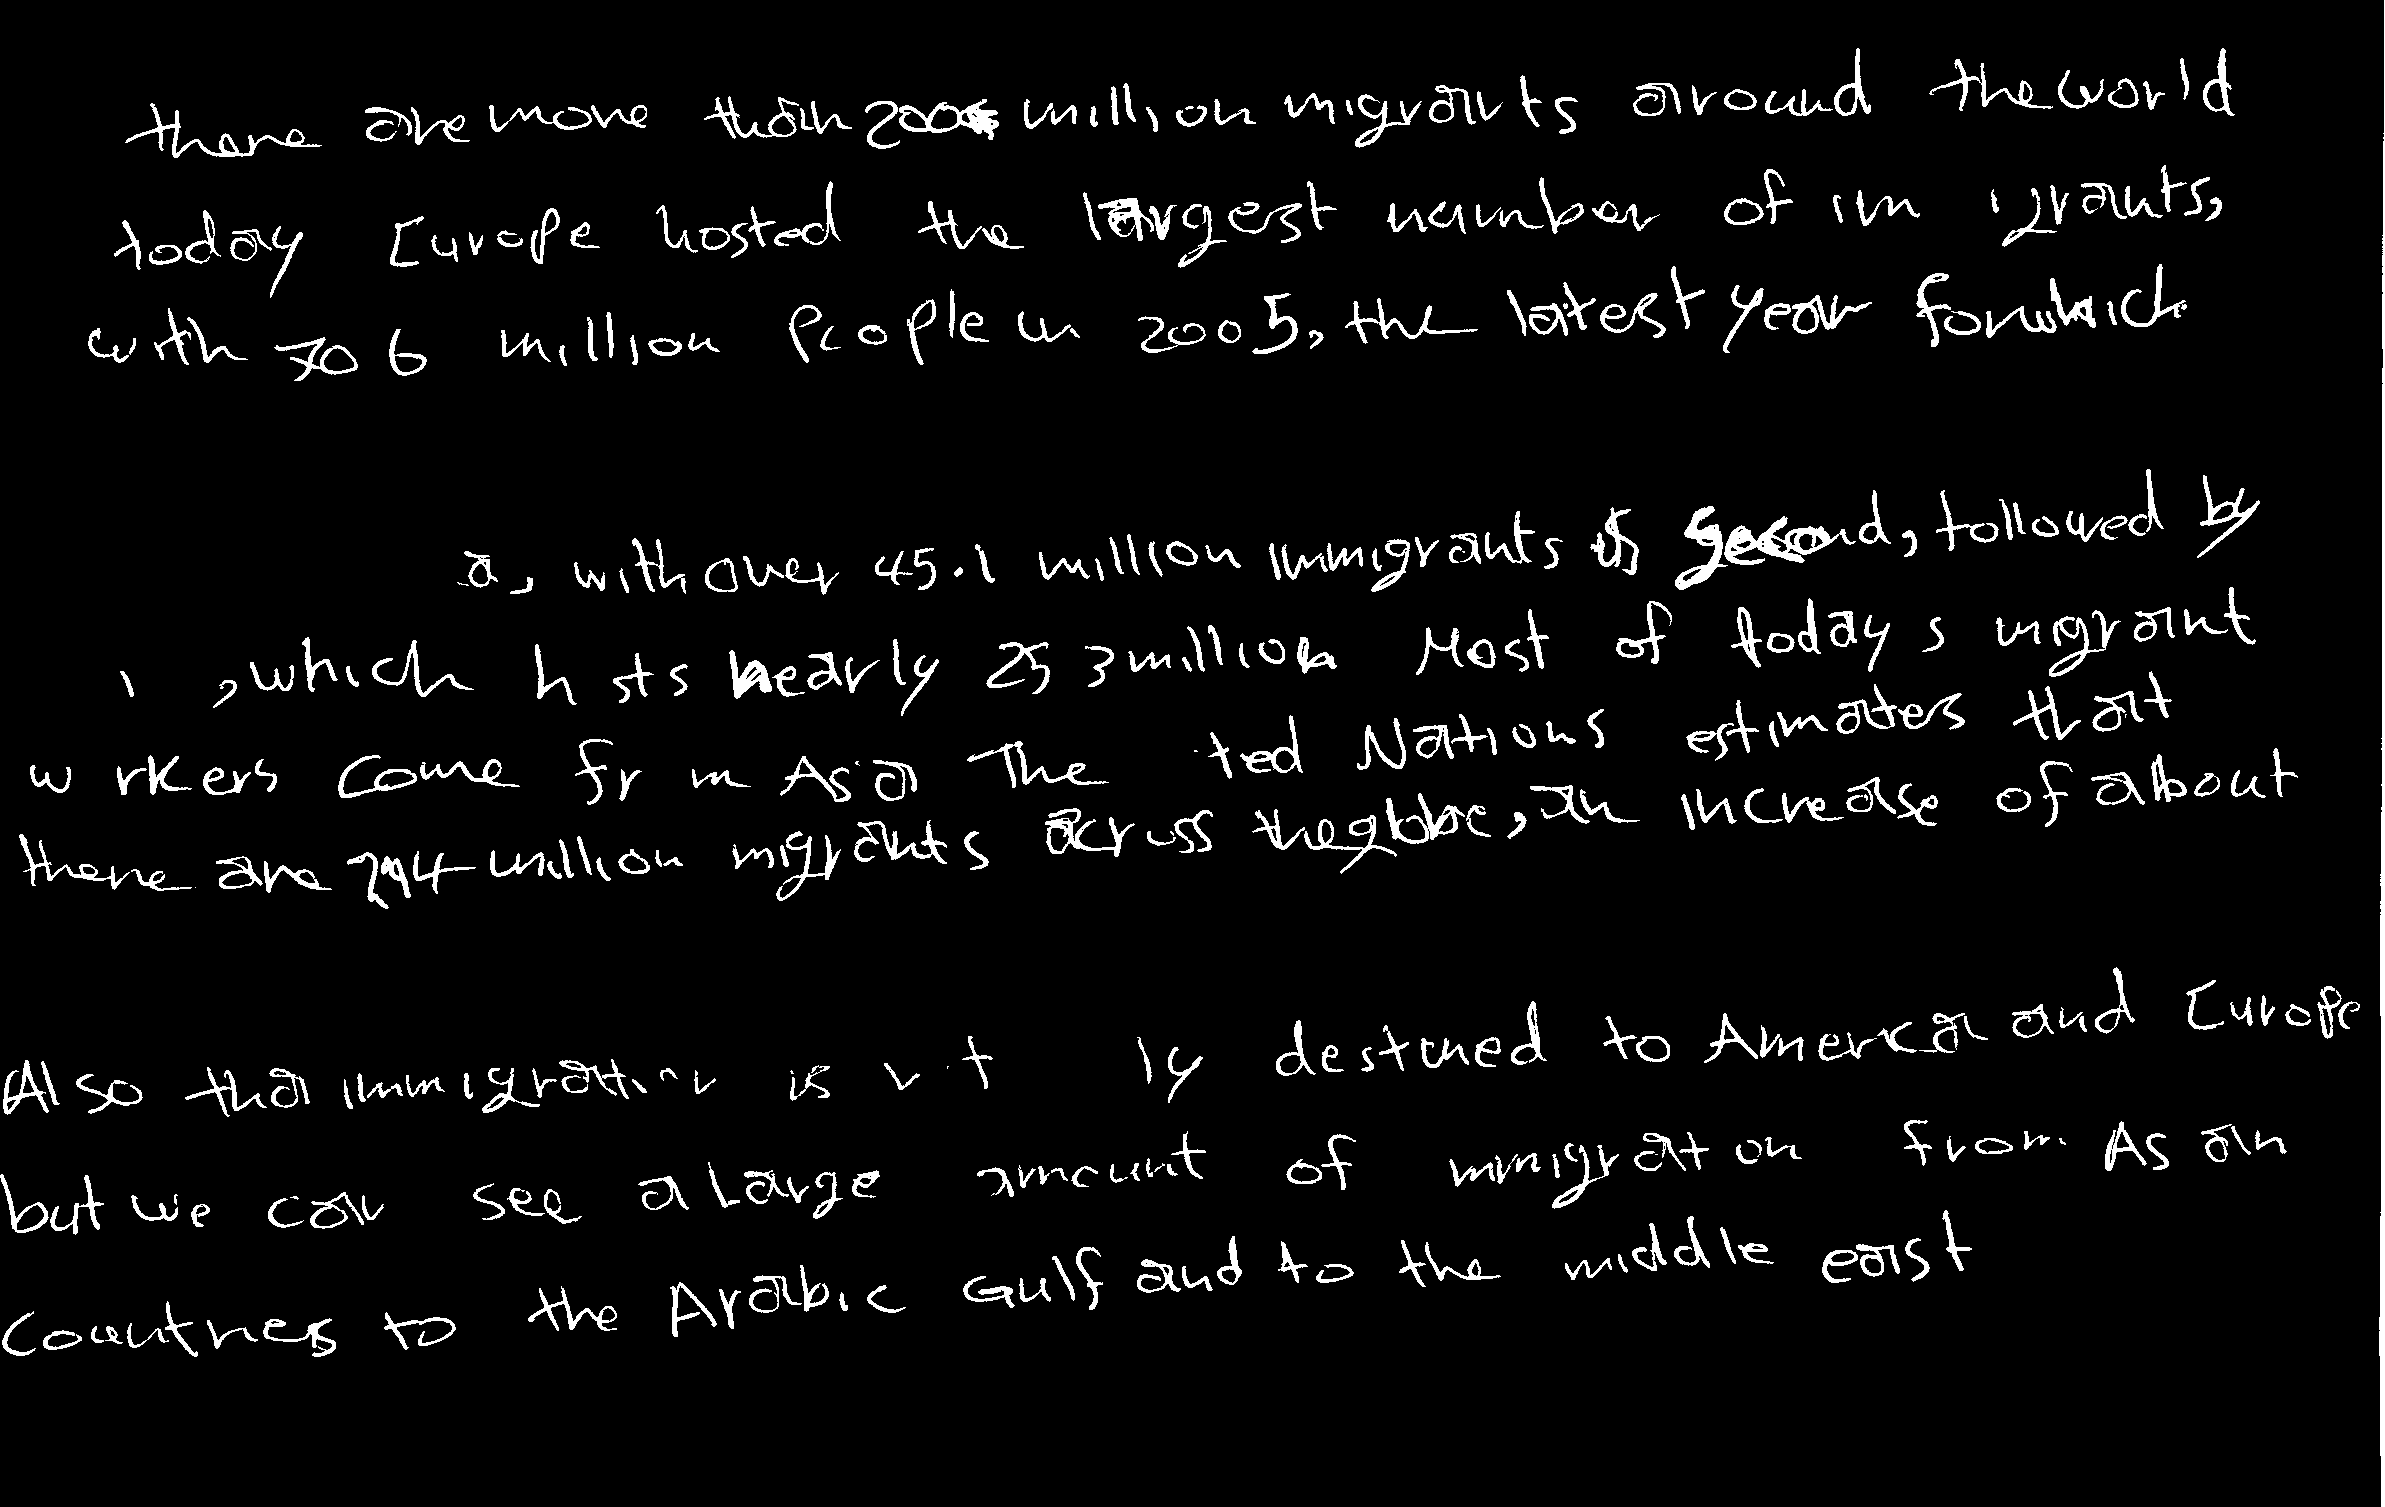 there are more than 200 million migrants around the world
today Europe hosted the largest number of im igrants,
with 70 6 million People in 2005, the latest year for which
a, with over 45.1 million immigrants is second, followed by
, which h sts nearly 25 3 million Most of today s migrant
w rkers come fr m Asia The ted Nations estimates that
there are 214 million migrants across the globe, an increase of about
Also tha immigration is ly destined to America and Europe
but we can see a Large amount of immigrat on from As an
Countries to the Arabic Gulf and to the middle east